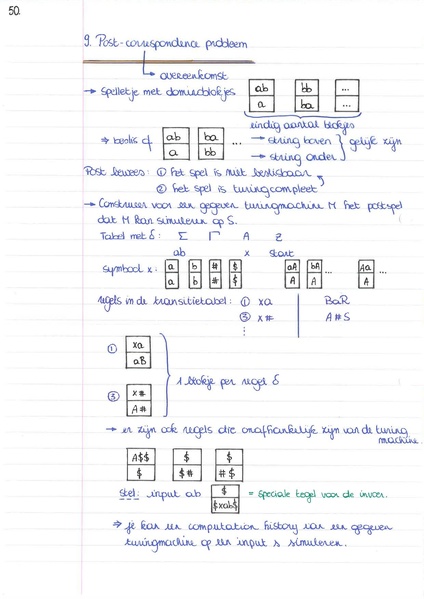 50.
9. Post-correspondence probleem
→ overeenkomst
→ Spelletje met dominoblokjes
ab bb ...
a ba ...
eindig aantal blokjes
⇒ beslis of ab ba ... → string boven } gelijk zijn
a bb → string onder
Post bewees: ① het spel is niet beslisbaar
② het spel is turingcompleet
→ Construeer voor een gegeven turingmachine M het postspel
dat M kan simuleren op S.
Tabel met δ: Σ Γ A Z
ab x start
symbool x: a b # $ aA bA ... Aa ...
a b # $ A A A
regels in de transitietabel: ① xa BaR
③ x# A#S
⋮
① xa
aB
} 1 blokje per regel δ
③ x#
A#
→ er zijn ook regels die onafhankelijk zijn van de turing
machine.
A$$ $ $
$ $# #$
stel: input ab $ = speciale tegel voor de invoer.
$xab$
⇒ je kan een computation history van een gegeven
turingmachine op een input s simuleren.